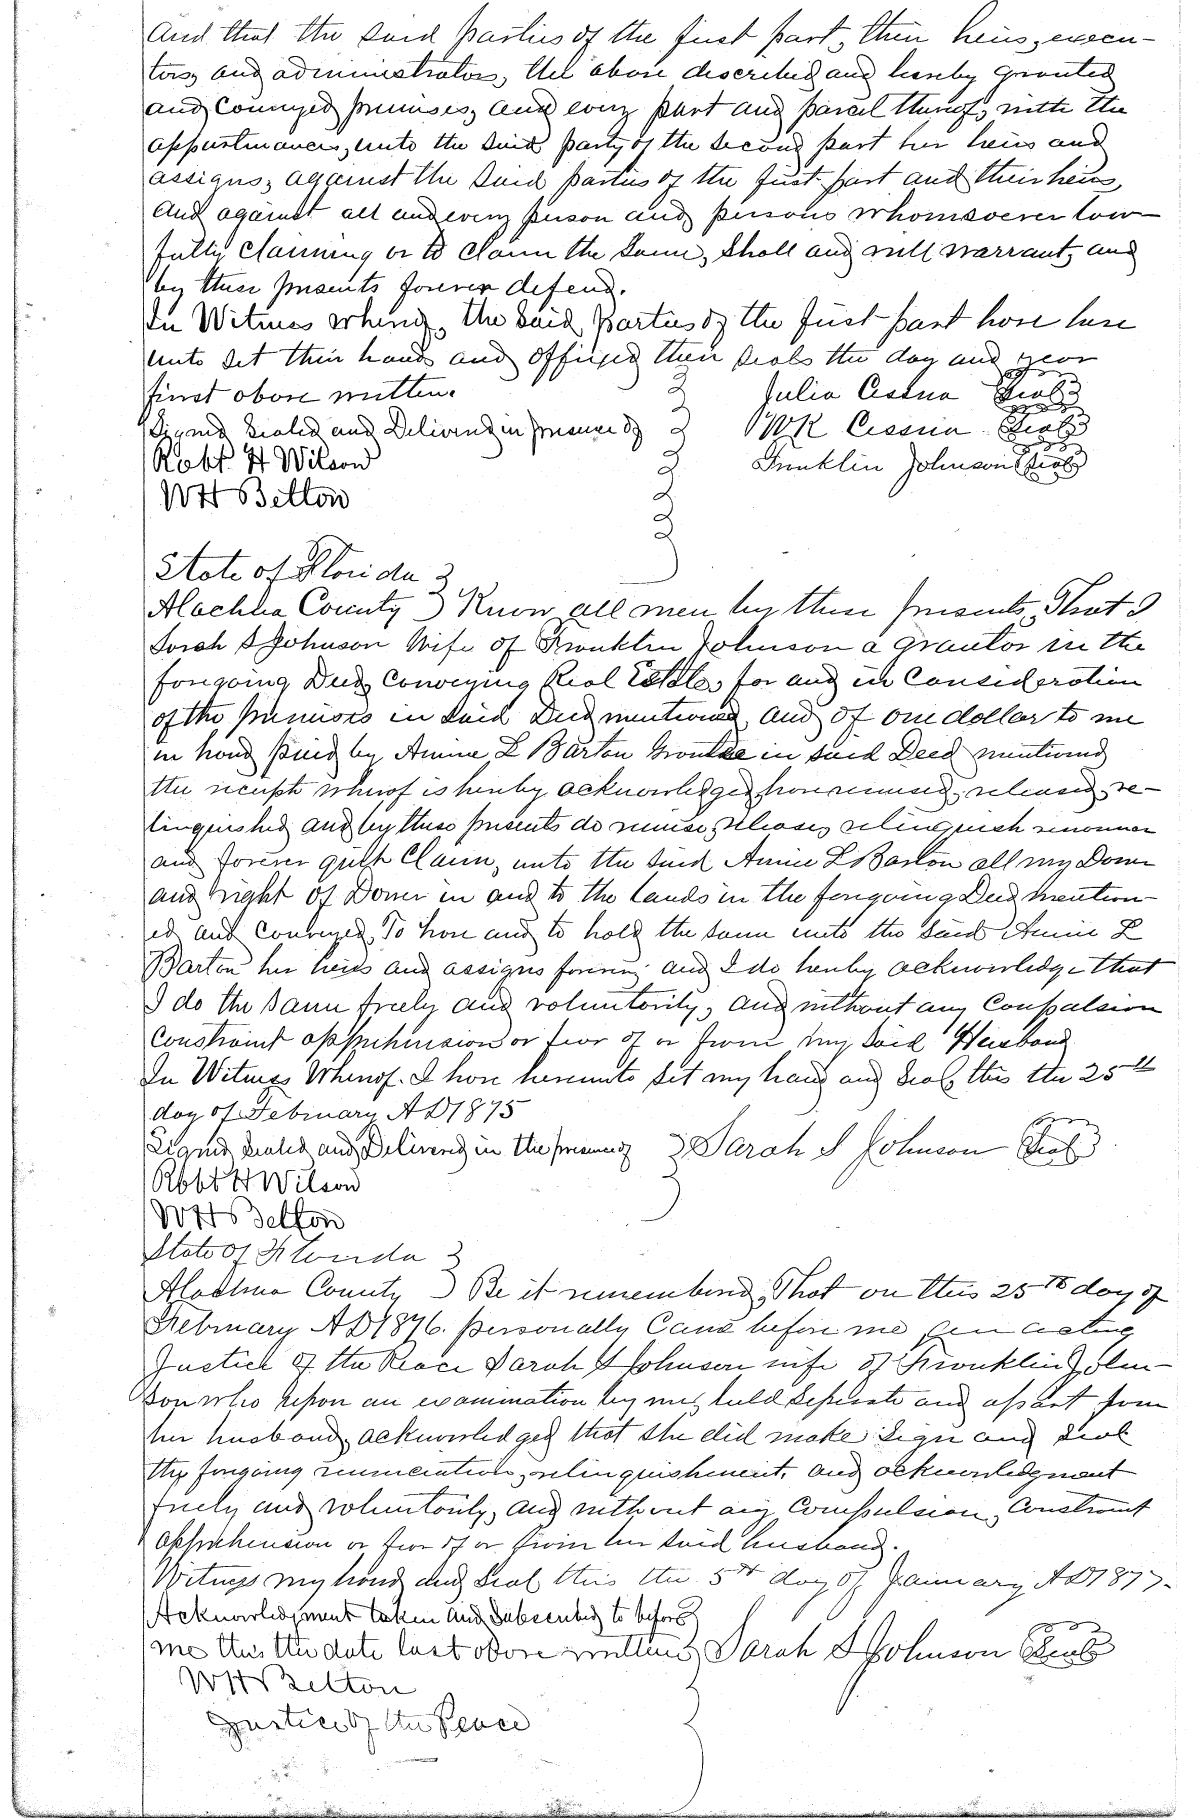 and that the said parties of the first part, their heirs, execu-
tors, and administrators, the above described and hereby granted
and conveyed premises, and every part and parcel thereof, with the
appurtenances, unto the said party of the second part her heirs and
assigns, against the said parties of the first part and their heirs,
and against all and every person and persons whomsoever law-
fully claiming or to claim the same, shall and will warrant, and
by these presents forever defend.
In Witness whereof, the said parties of the first part have here
unto set their hands and affixed their seals the day and year
first above written.
Julia Cessna Seal
Signed Sealed and Delivered in presence of
WK Cessna Seal
Robt H Wilson
Franklin Johnson Seal
WH Belton
State of Florida
Alachua County } Know all men by these presents, That I
Sarah S Johnson Wife of Franklin Johnson a grantor in the
foregoing Deed, Conveying Real Estate, for and in Consideration
of the premises in said Deed mentioned, and of one dollar to me
in hand paid by Annie L Barton Grantee in said Deed mentioned
the receipt whereof is hereby acknowledged, have remised, released, re-
linquished and by these presents do remise, release, relinquish renounce
and forever quit Claim, unto the said Annie L Barton all my Dower
and right of Dower in and to the lands in the foregoing Deed mention-
ed and Conveyed, To have and to hold the same unto the said Annie L
Barton her heirs and assigns forever; and I do hereby acknowledge that
I do the same freely and voluntarily, and without any Compulsion
Constraint apprehension or fear of or from my said Husband
In Witness Whereof. I have hereunto set my hand and Seal, this the 25th
day of February AD 1875
Signed, Sealed and Delivered in the presence of } Sarah S Johnson Seal
Robt H Wilson
WH Belton
State of Florida
Alachua County } Be it remembered, That on this 25th day of
February AD 1876. personally Came before me an acting
Justice of the Peace Sarah S Johnson wife of Franklin John-
son who upon an examination by me, held seperate and apart from
her husband, acknowledged that she did make sign and seal
the foregoing renunciation, relinquishment, and acknowledgment
freely and voluntarily, and without any Compulsion, Constraint
apprehension or fear of or from her said husband.
Witness my hand and Seal this the 5th day of January AD 1877.
Acknowledgment taken and Subscribed to before
me this the date last above written } Sarah S Johnson Seal
WH Belton
Justice of the Peace